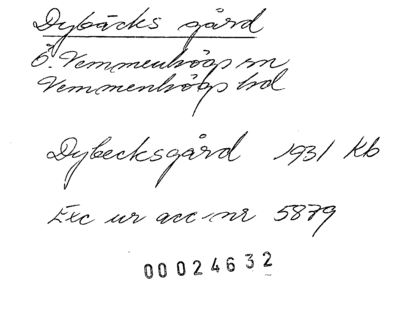 Dybäcks gård
Ö. Vemmenhögs sn
Vemmenhögs hd
Dybecksgård 1931 Kb
Exc ur acc-nr 5879
00024632